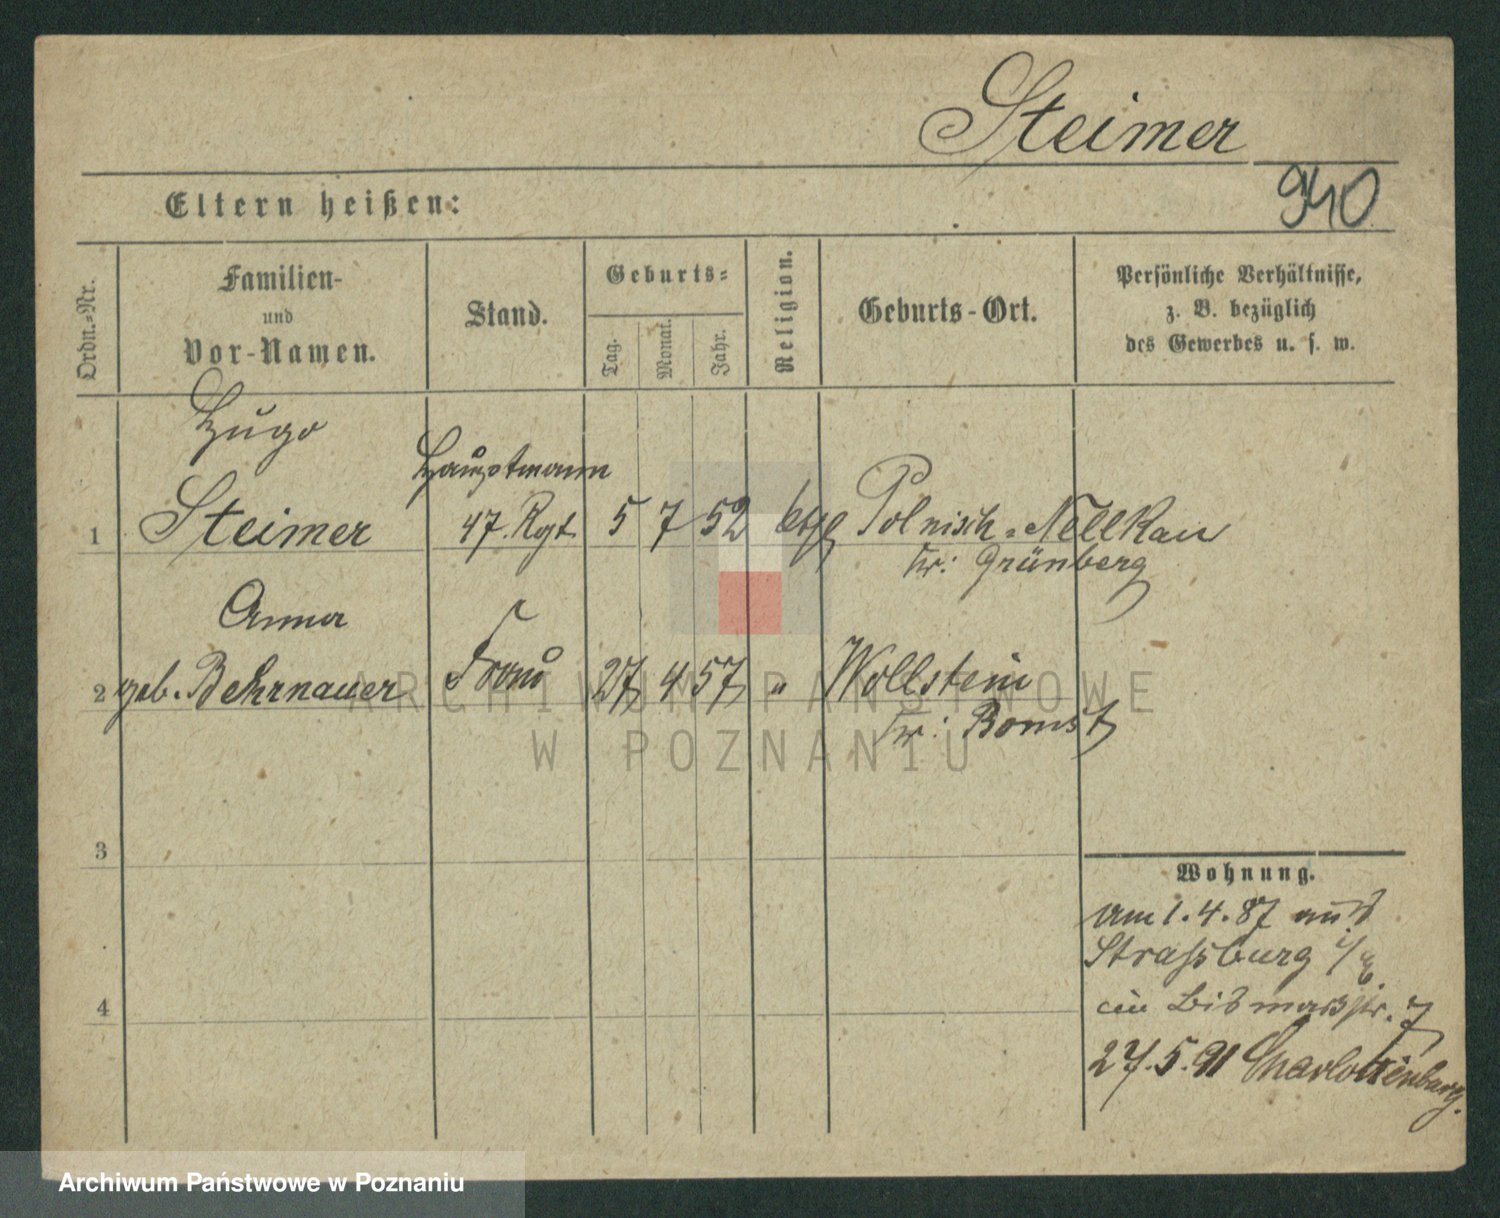 Steimer
940
Eltern heißen:
Ordn.-Nr.
Familien-
und
Vor-Namen.
Stand.
Geburts-
Tag.
Monat.
Jahr.
Religion.
Geburts-Ort.
Persönliche Verhältnisse,
z. B. bezüglich
des Gewerbes u. s. w.
Hugo
Hauptmann
1 Steimer 47. Rgt. 5 7 52 Polnisch-Nellkau
Kr: Grünberg
Anna Frau
2 geb. Behrnauer 27 4 57 " Wollstein
Kr: Bomst
3
4
Wohnung.
am 1.4.87 aus
Strassburg i/E
in Bismarkstr. 7
27.5.91 Charlottenburg.
ARCHIWUM PAŃSTWOWE
W POZNANIU
Archiwum Państwowe w Poznaniu